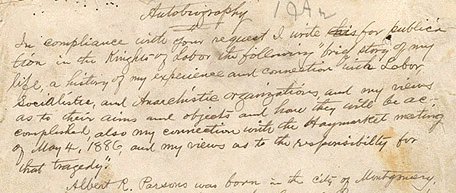 Autobiography
In compliance with your request I write this for publica-
tion in the Knights of Labor the following "brief story of my
life, a history of my experience and connection with Labor
Socialistic, and Anarchistic organizations, and my views
as to their aims and objects and how they will be ac-
complished, also my connection with the Haymarket meeting
of May 4, 1886, and my views as to the responsibility for
that tragedy".
Albert R. Parsons was born in the city of Montgomery,